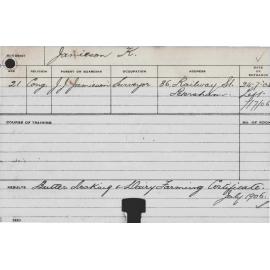 Jamieson K. 4
AGE RELIGION PARENT OR GUARDIAN OCCUPATION ADDRESS DATE OF ENTRANCE
21 Cong J.J. Jamieson Surveyor 36 Railway St.
Horsham Left
COURSE OF TRAINING
RESULTS Butter Making & Dairy Farming Certificate
July 1906.